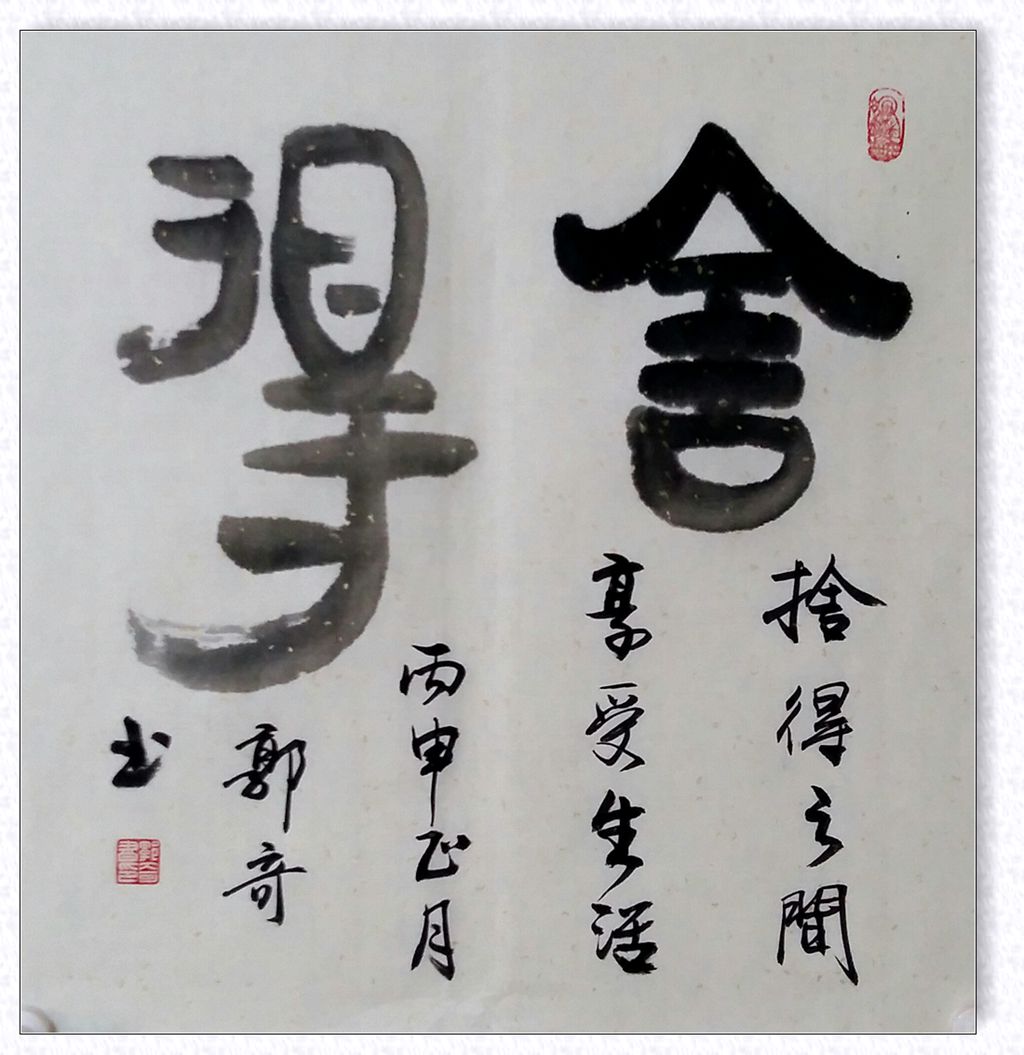 舍得
捨得之間
享受生活
丙申正月
郭奇
书